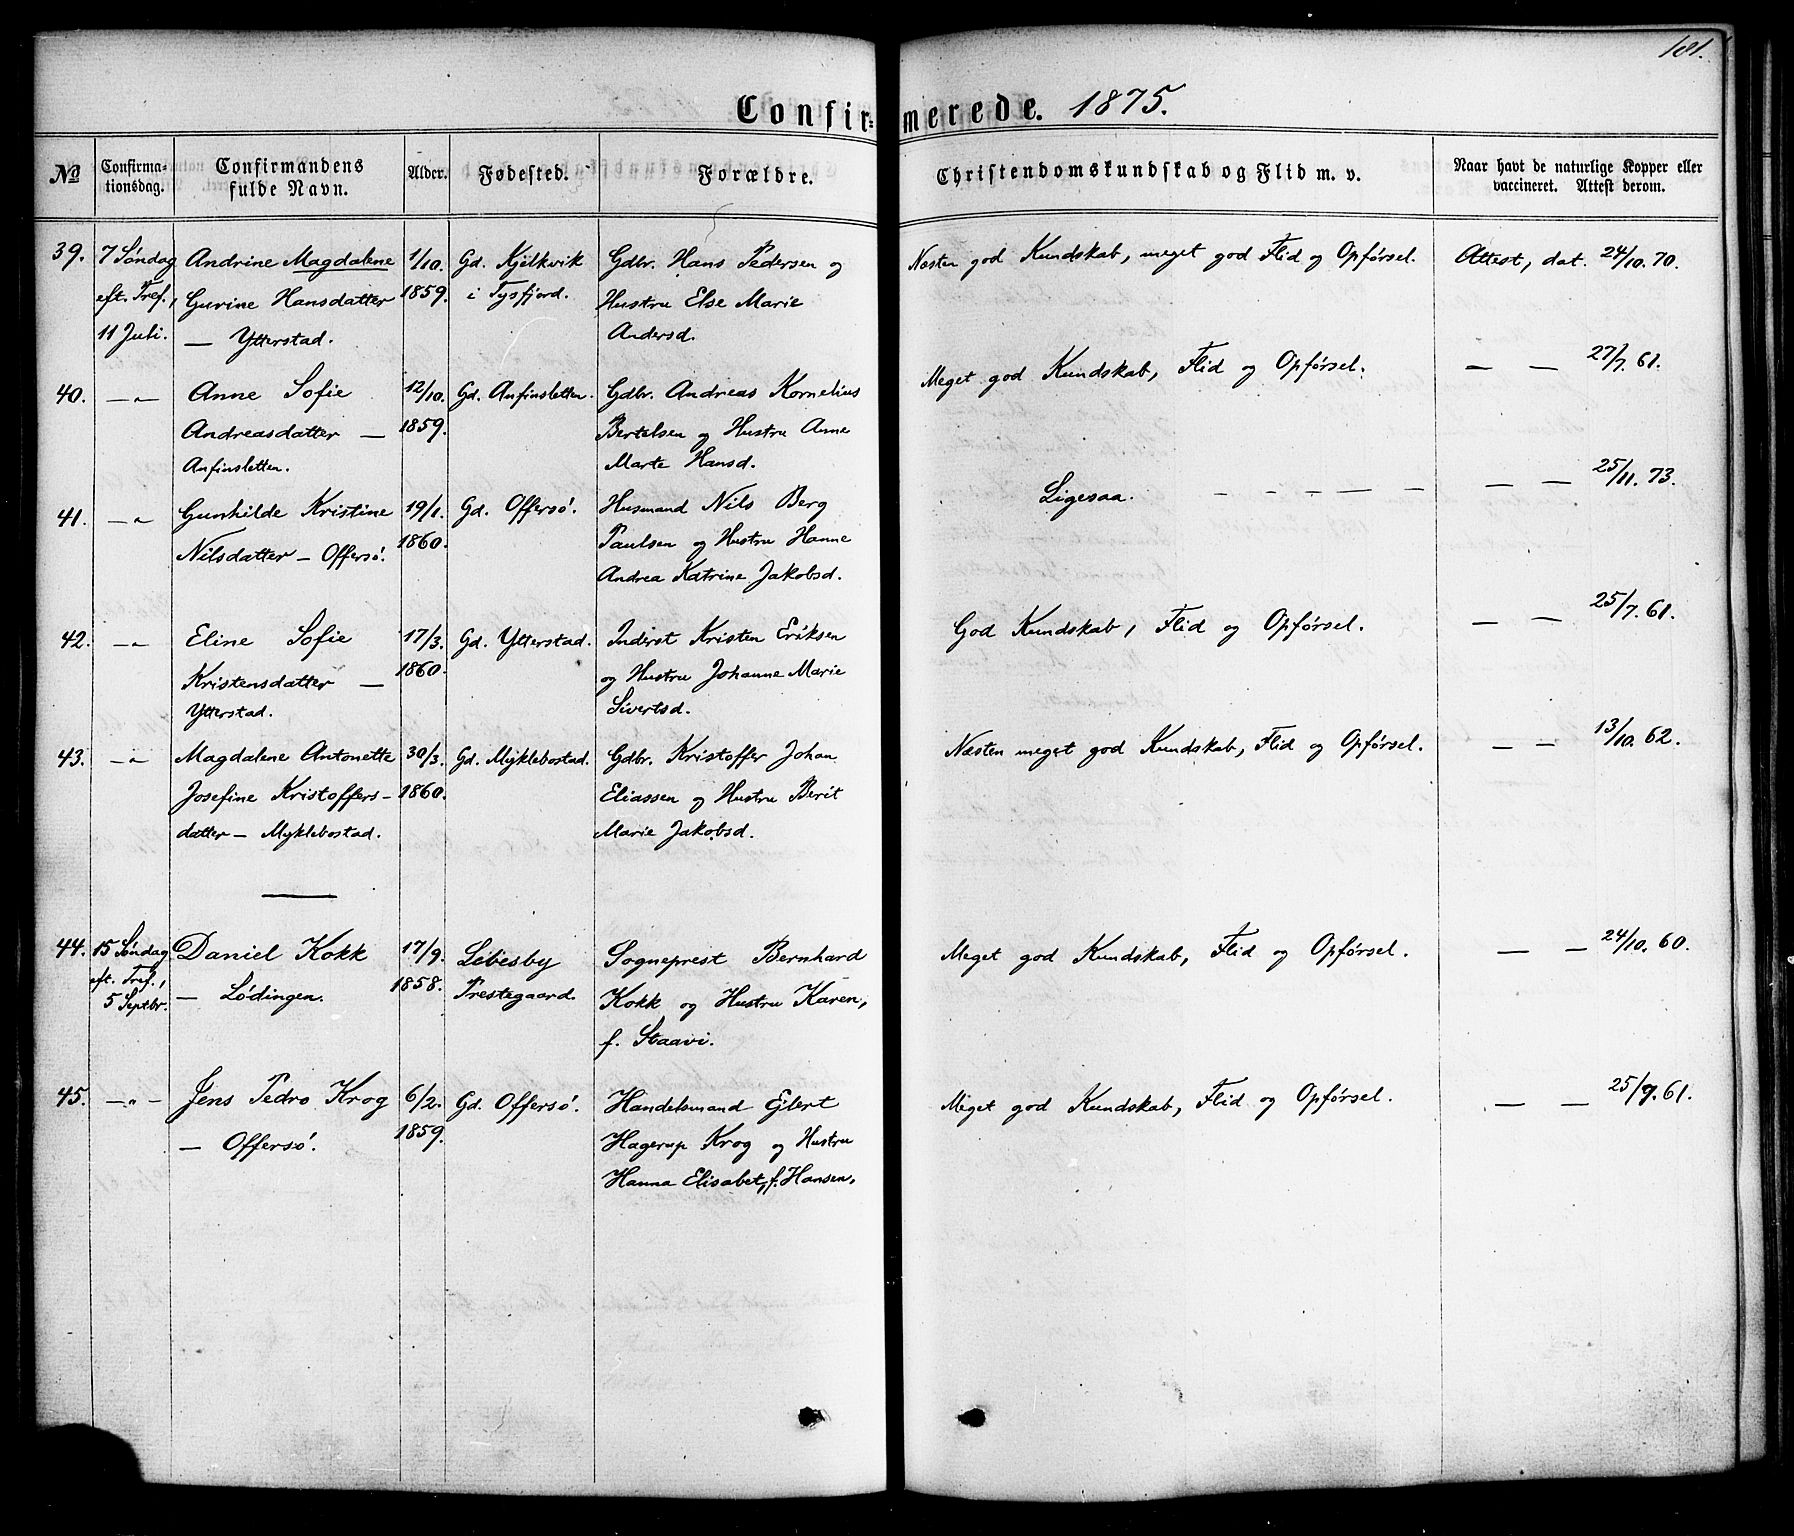 181.
Confirmerede. 1875.
No Confirmationsdag. Confirmandens fulde Navn. Alder. Fødested. Forældre. Christendomskundskab og Flid m. v. Naar havt de naturlige Kopper eller vaccineret. Attest derom.
39. 7 Søndag Andrine Magdalene 1/10. Gd. Kjelkvik Gdbr. Hans Pedersen og Næsten god Kundskab, meget god Flid og Opførsel. Attest, dat. 24/10. 70.
eft. Tref., Gurine Hansdatter 1859. i Tysfjord. Hustru Else Marie
11 Juli. — Ytterstad. Andersd.
40. —„— Anne Sofie 12/10. Gd. Anfinsletten. Gdbr. Andreas Kornelius Meget god Kundskab, Flid og Opførsel. — — 27/7. 61.
Andreasdatter — 1859. Bertelsen og Hustru Anne
Anfinsletten. Marte Hansd.
41. —„— Gunhilde Kristine 19/1. Gd. Offersø. Husmand Nils Berg Ligesaa. — — — — — — — 25/11. 73.
Nilsdatter — Offersø. 1860. Paulsen og Hustru Hanne
Andrea Katrine Jakobsd.
42. —„— Eline Sofie 17/3. Gd. Ytterstad. Inderst Kristen Eriksen God Kundskab, Flid og Opførsel. — — 25/7. 61.
Kristensdatter — 1860. og Hustru Johanne Marie
Ytterstad. Sivertsd.
43. —„— Magdalene Antonette 30/3. Gd. Myklebostad. Gdbr. Kristoffer Johan Næsten meget god Kundskab, Flid og Opførsel. — — 13/10. 62.
Josefine Kristoffers- 1860. Eliassen og Hustru Berit
datter — Myklebostad. Marie Jakobsd.
44. 15 Søndag Daniel Kokk 17/9. Lebesby Sogneprest Bernhard Meget god Kundskab, Flid og Opførsel. — — 24/10. 60.
eft. Tref., — Lødingen. 1858. Prestegaard. Kokk og Hustru Karen,
5 Septbr. f. Staavi.
45. —„— Jens Pedro Krog 6/2. Gd. Offersø. Handelsmand Ejlert Meget god Kundskab, Flid og Opførsel. — — 25/7. 61.
— Offersø. 1859. Hagerup Krog og Hustru
Hanna Elisabet, f. Hansen.